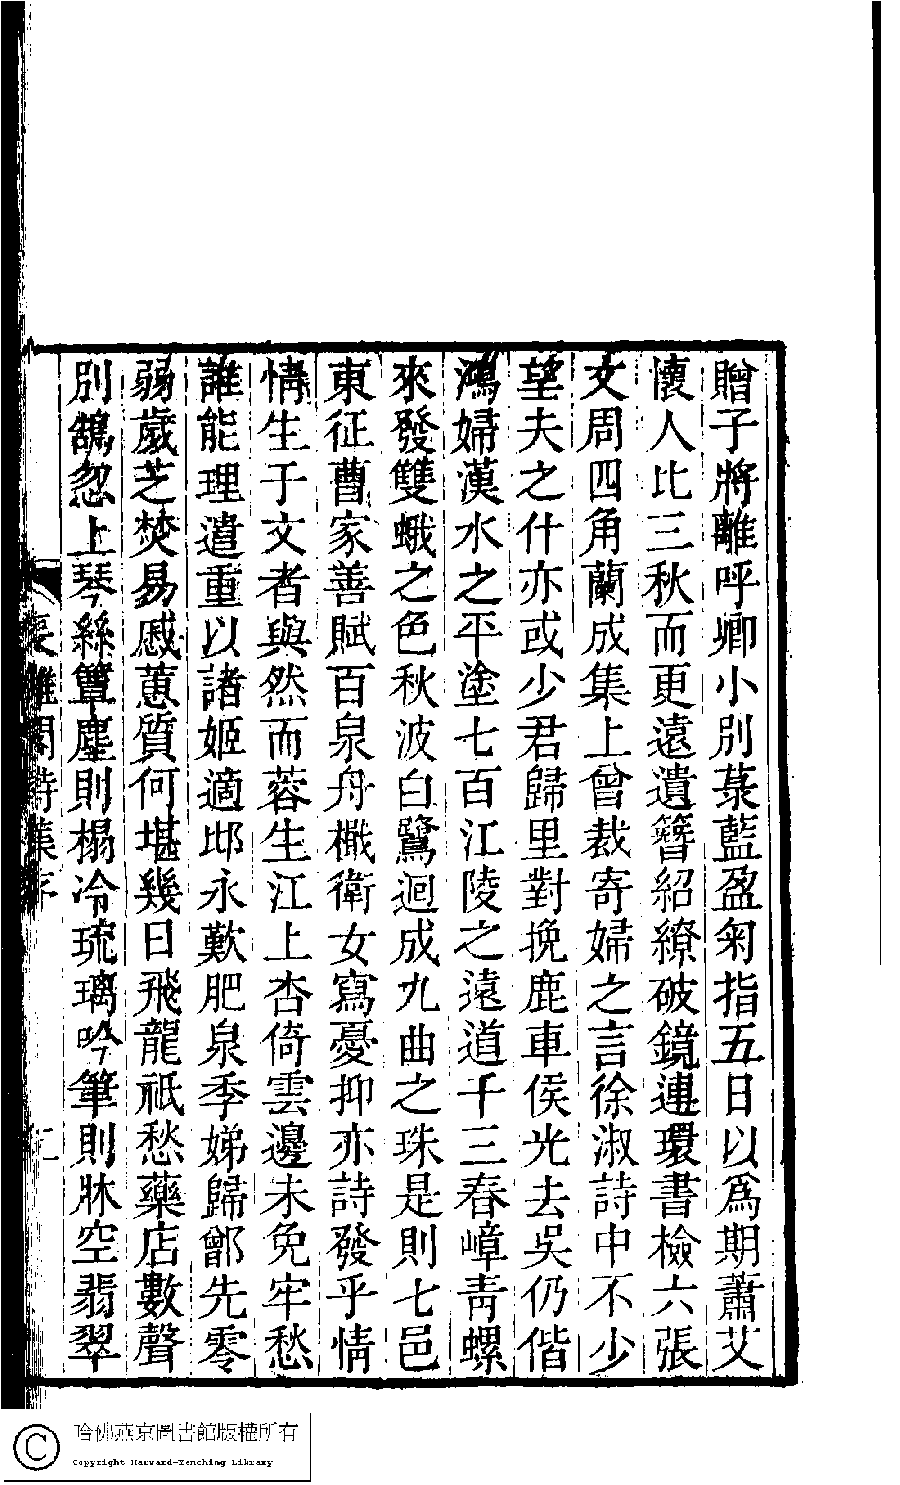 贈子將離呼卿小別菉藍盈匊指五日以爲期蕭艾
懷人比三秋而更遠遺簪紹繚破鏡連環書檢六張
文周四角蘭成集上曾裁寄婦之言徐淑詩中不少
望夫之什亦或少君歸里對挽鹿車侯光去吳仍偕
鴻婦漢水之平塗七百江陵之遠道千三春嶂靑螺
來發雙蛾之色秋波白鷺迴成九曲之珠是則七邑
東征曹家善賦百泉舟檝衛女寫憂抑亦詩發乎情
情生于文者與然而蓉生江上杏倚雲邊未免牢愁
誰能理遣重以諸姬適邶永歎肥泉季娣歸鄫先零
弱歲芝焚易慼蕙質何堪幾日飛龍祇愁藥店數聲
別鵠忽上琴絲簟塵則榻冷琉璃吟筆則牀空翡翠
長離閣詩集序
哈佛燕京圖書館版權所有
Copyright Harvard-Yenching Library